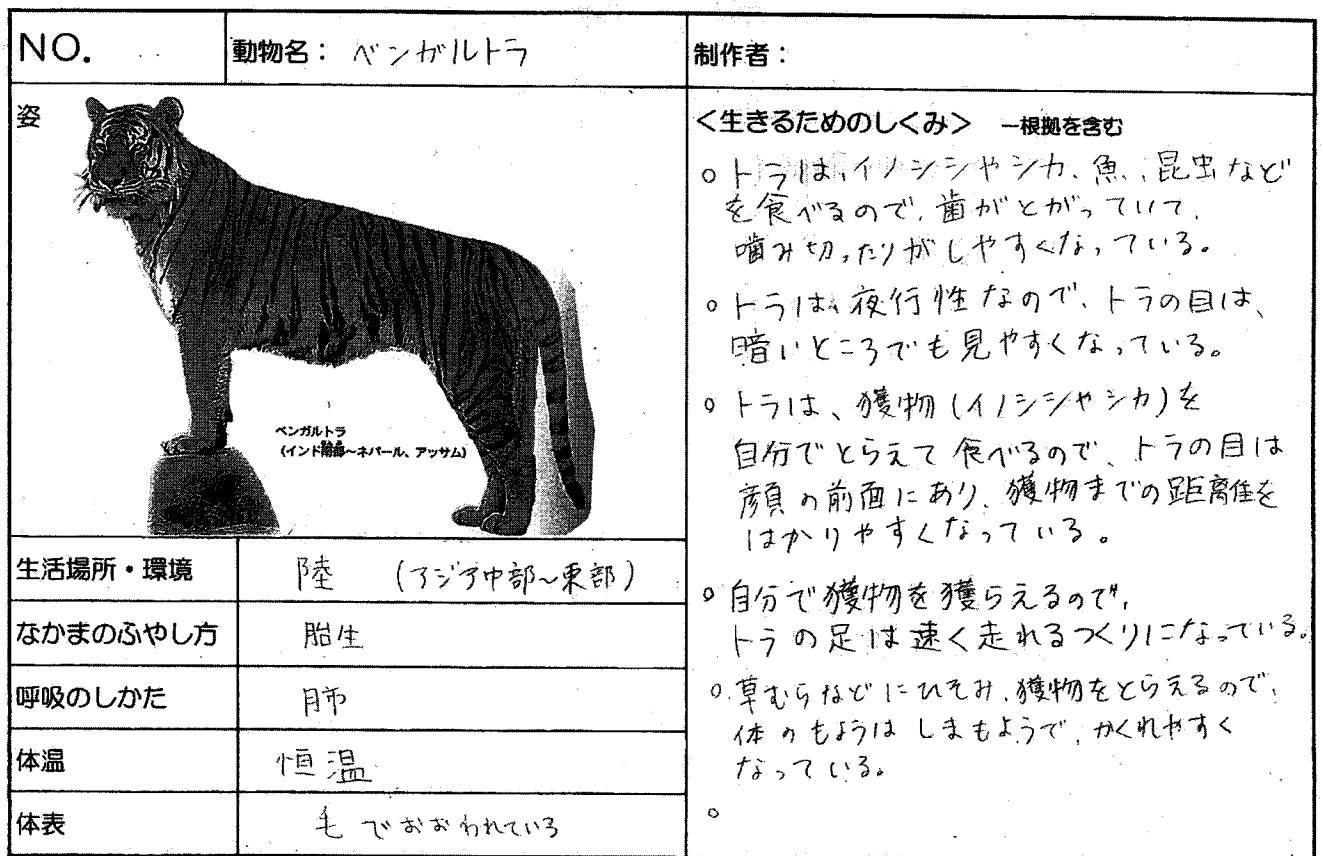 NO.
動物名： ベンガルトラ
制作者：
姿
ベンガルトラ
(インド南部～ネパール、アッサム)
生活場所・環境 陸 (アジア中部～東部)
なかまのふやし方 胎生
呼吸のしかた 肺
体温 恒温
体表 毛でおおわれている
＜生きるためのしくみ＞ ―根拠を含む
○トラは、イノシシやシカ、魚、昆虫など
を食べるので、歯がとがっていて、
噛み切ったりがしやすくなっている。
○トラは、夜行性なので、トラの目は、
暗いところでも見やすくなっている。
○トラは、獲物(イノシシやシカ)を
自分でとらえて食べるので、トラの目は
顔の前面にあり、獲物までの距離を
はかりやすくなっている。
○自分で獲物を獲らえるので、
トラの足は速く走れるつくりになっている。
○草むらなどにひそみ、獲物をとらえるので、
体のもようはしまもようで、かくれやすく
なっている。
○